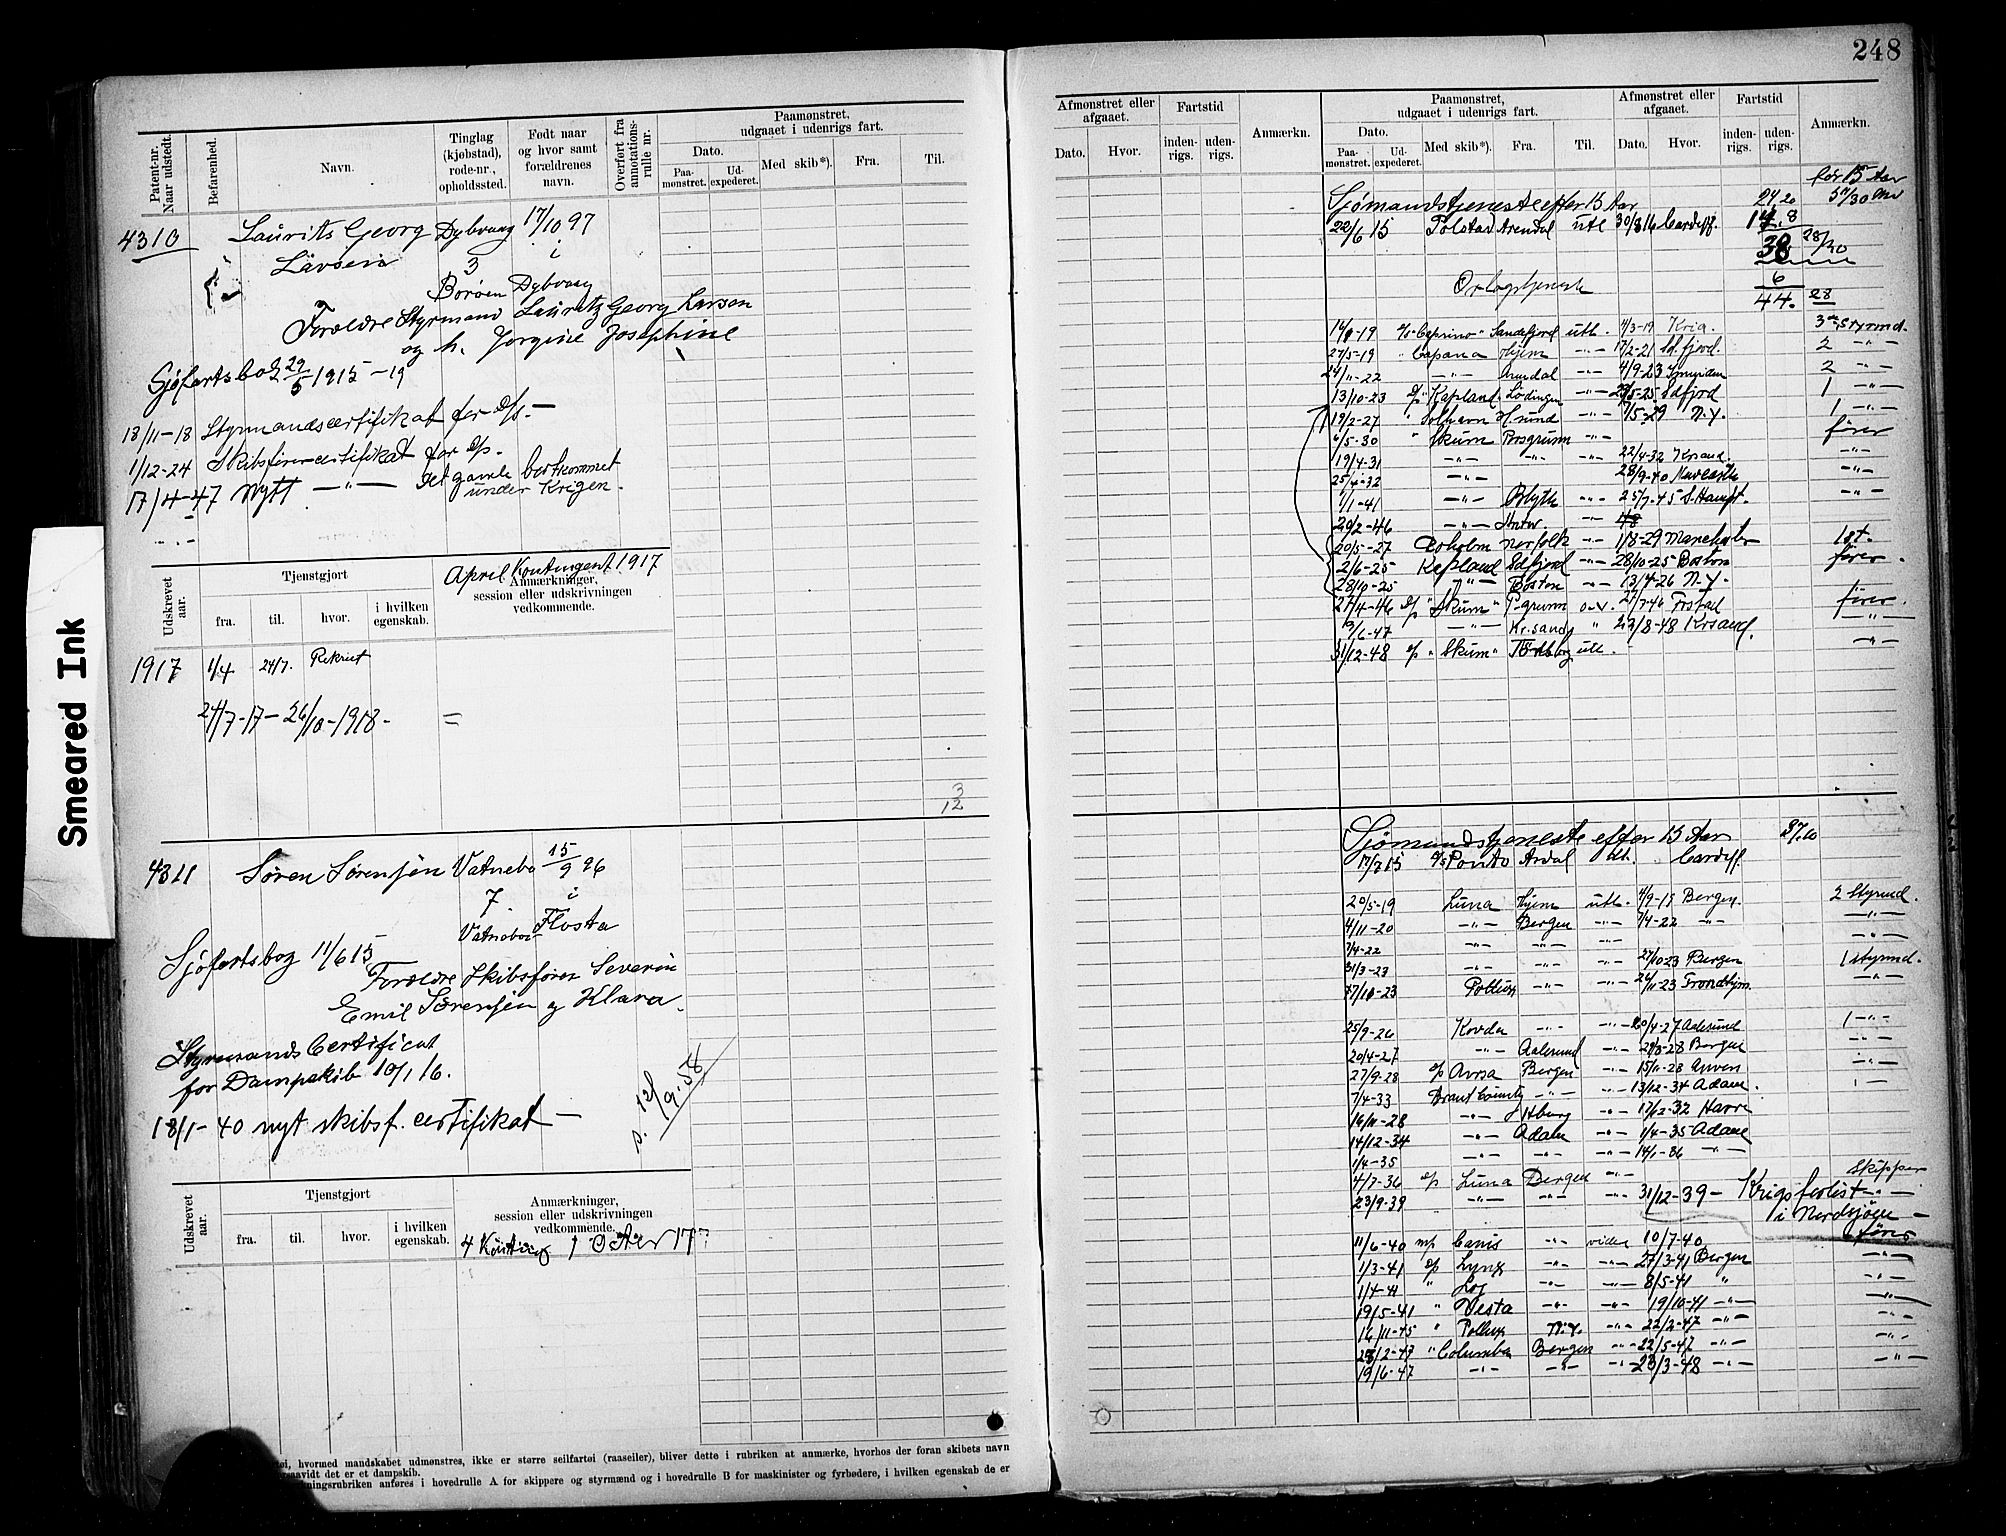 248
Smeared Ink
Patent-nr. Naar udstedt.
Befarenhed.
Navn.
Tinglag (kjøbstad), rode-nr., opholdssted.
Født naar og hvor samt forældrenes navn.
Overført fra annotations-rulle nr.
Paamønstret, udgaaet i udenrigs fart.
Dato.
Paa-mønstret.
Ud-expederet.
Med skib*).
Fra.
Til.
4310
Laurits Georg Dybvaag 17/10 97
Larsen 3 i
Borøen Dybvaag
Forældre Styrmand Lauritz Georg Larsen
og h. Jorgine Josephine
Sjøfartsbog 29/5 1915 - 19
18/11-18 Styrmandscertifikat for D/s. -
1/12-24 Skibsførercertifikat for D/s.
17/4-47 nytt -"- det gamle bortkommet
under Krigen.
Udskrevet aar.
Tjenstgjort
fra.
til.
hvor.
i hvilken egenskab.
April Kontingent 1917
Anmærkninger, session eller udskrivningen vedkommende.
1917 1/4 24/7. Rekrut
24/7-17 - 26/10-1918 - =
3
12
4311 Søren Sørensen Vatnebo 15/9 96
7 i
Vatnebo Flosta
Sjøfartsbog 11/6 15
Forældre Skibsfører Severin
Emil Sørensen og Klara
Styrmands Certificat
for Dampskib 10/1 16.
18/1-40 nyt skibsf. certifikat -
d. 12/9-58
Udskrevet aar.
Tjenstgjort
fra.
til.
hvor.
i hvilken egenskab.
Anmærkninger,
session eller udskrivningen
vedkommende.
4 Konting 1 Okter 17
tøi, hvormed mandskabet udmønstres, ikke er større seilfartøi (raaseiler), bliver dette i rubriken at anmærke, hvorhos der foran skibets navn
saavidt det er et dampskib.
ningsrubriken anføres i hovedrulle A for skippere og styrmænd og i hovedrulle B for maskinister og fyrbødere, i hvilken egenskab de er
Afmønstret eller afgaaet.
Dato.
Hvor.
Fartstid
inden-rigs.
uden-rigs.
Anmærkn.
Paamønstret,
udgaaet i udenrigs fart.
Dato.
Paa-mønstret.
Ud-expederet.
Med skib*).
Fra.
Til.
Afmønstret eller afgaaet.
Dato.
Hvor.
Fartstid
inden-rigs.
uden-rigs.
Anmærkn.
før 15 Aar
Sjømandstjeneste efter 15 Aar 24,20
22/6 15 Polstad Arendal utl 30/8 16 Cardiff. 14.8
38 28/30
Orlogstjeneste 6
44. 28
14/1-19 "Caprino" Sandefjord utl. 4/3-19 Kria. 3die styrmd.
27/5-19 " Capana Hjem -"- 17/2-21 Sd.fjord. 2 -"-
24/11-22 -"- Arendal -"- 4/9-23 2 -"-
13/10-23 D/s "Kapland" Lødingen -"- 28/5-25 Sdfjord 1 -"-
19/2-27 " Solhavn H.sund -"- 7/5-29 N.Y. 1 -"-
6/5-30 " Skum Porsgrunn -"- fører
19/4-31 -"- -"- -"- 22/4-32 Krsand. -"-
25/4-32 -"- 28/9-40 Newcastle -"-
1/1-41 -"- Blyth -"- 25/7-45 S.Hampt. -"-
20/2-46 -"- Antw. -"- 48
20/5-27 Norfolk -"- 1/8-29 Manchester 1st.
2/6-25 Kapland Sdfjord -"- 28/10-25 Boston fører.
28/10-25 -"- Boston -"- 13/4-26 N.Y.
27/4-46 D/s "Skum" P.grunn o.v. 27/7-46 Frstad fører.
/6-47 -"- Kr.sand " 22/8-48 Krsand. -"-
31/12-48 D/s "Skum" utl. -"-
Sjømandstjeneste efter 15 Aar 37.10
17/7 15 D/S Ponto Ardal utl. Cardiff
20/5-19 Luna Hjem utl. 4/9-19 Bergen. 2 Styrmd.
4/11-20 -"- Bergen -"- 7/4-22 -"- -"-
7/4-22 -"- -"- -"- -"-
31/3-23 -"- -"- 27/10-23 Bergen 1 styrmd.
27/10-23 Pollux -"- -"- 26/11-23 Trondhjem. -"-
25/9-26 Kovda -"- -"- 20/4-27 Aalesund 1 -"-
20/4-27 -"- Aalesund -"- 29/8-28 Bergen -"-
27/9-28 D/s Avrsa Bergen -"- 15/11-28 -"-
7/4-33 Brant County -"- -"- 13/12-34 Adam. -"-
16/11-28 -"- -"- 17/12-32 Havre
14/12-34 -"- Adam -"- 1/4-35 Adam
1/4-35 -"- -"- -"- 14/1-36 -"-
4/7-36 D/s Luna Bergen -"- Skipper
23/9-39 -"- -"- -"- 31/12-39 - Krigsforlist -"-
i Nordsjøen -
11/6-40 m/s Canis -"- viden 10/7-40 fører
1/3-41 D/s Lynx -"- -"- 27/3-41 Bergen -"-
1/4-41 " -"- -"- 8/5-41 " -"-
19/5-41 " Vesta -"- -"- 19/10-41 -"- -"-
16/11-45 " Pollux N.Y. -"- 22/2-47 -"- -"-
28/2-47 " Columba Bergen -"- 22/5-47 -"- -"-
19/6-47 -"- -"- -"- 23/3-48 -"- -"-